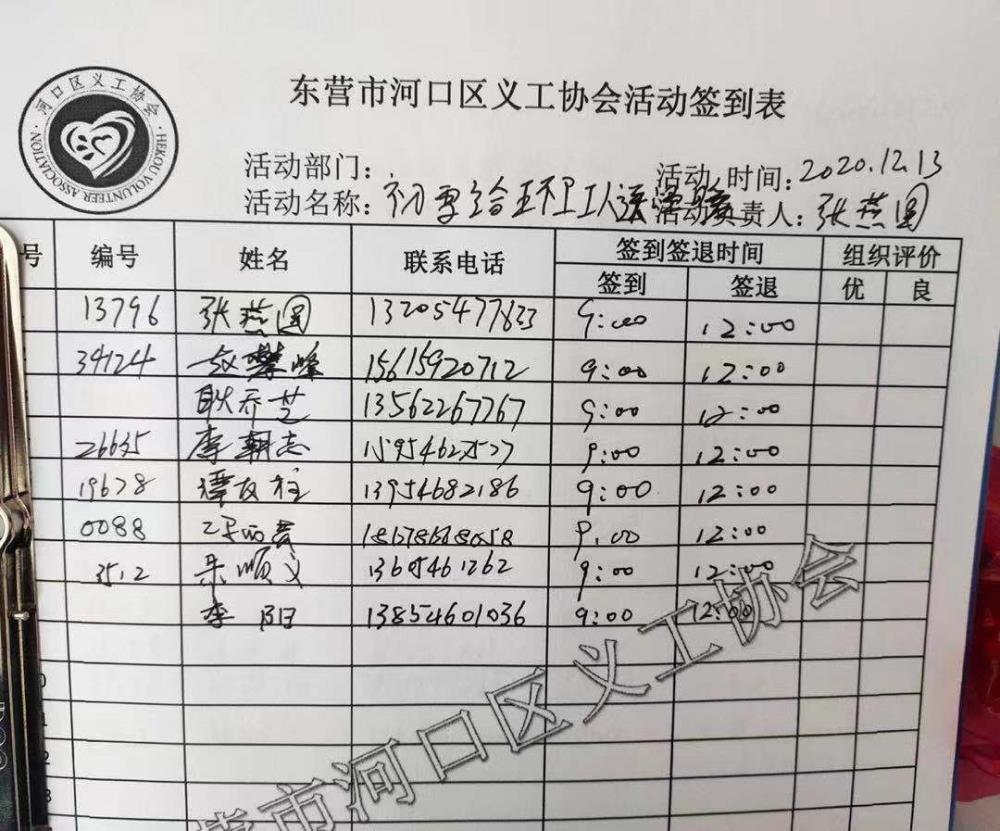 河口区义工协会
HEKOU VOLUNTEER ASSOCIATION
东营市河口区义工协会活动签到表
活动部门: 活动 时间: 2020.12.13
活动名称: 初雪给环卫工人送温暖 活动负责人: 张燕图
号 编号 姓名 联系电话 签到签退时间 组织评价
签到 签退 优 良
13796 张燕图 13205477633 9:00 12:00
34124 赵攀峰 15615920712 9:00 12:00
耿乔芝 13562267767 9:00 12:00
26635 李朝志 15954627577 9:00 12:00
19678 谭友柱 13954682186 9:00 12:00
0088 9:00 12:00
3512 朱顺义 13605461262 9:00 12:00
李阳 13854601036 9:00 12:00
营市河口区义工协会